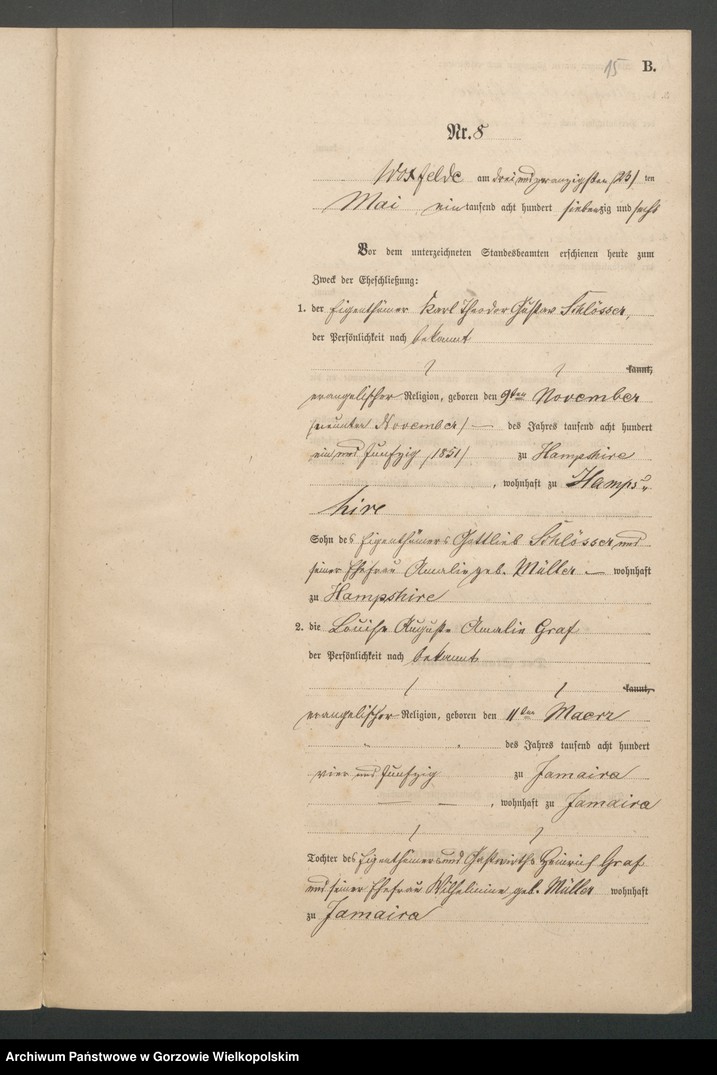 15 B.
Nr. 8
Woxfelde am drei und zwanzigsten /23/ ten
Mai ein tausend acht hundert siebenzig und sechs
Vor dem unterzeichneten Standesbeamten erschienen heute zum
Zweck der Eheschließung:
1. der Eigenthümer Karl Theodor Gustav Schlösser,
der Persönlichkeit nach bekannt
kannt,
evangelischer Religion, geboren den 9ten November
/neunten November/ — des Jahres tausend acht hundert
ein und funfzig /1851/ zu Hampshire
, wohnhaft zu Hamps-
hire
Sohn des Eigenthümers Gottlieb Schlösser und
seiner Ehefrau Amalie geb. Müller — wohnhaft
zu Hampshire
2. die Louise Auguste Amalie Graf
der Persönlichkeit nach bekannt
kannt,
evangelischer Religion, geboren den 11ten Maerz
des Jahres tausend acht hundert
vier und funfzig zu Jamaica
— — , wohnhaft zu Jamaica
Tochter des Eigenthümers und Gastwirths Heinrich Graf
und seiner Ehefrau Wilhelmine, geb. Müller wohnhaft
zu Jamaica
Archiwum Państwowe w Gorzowie Wielkopolskim